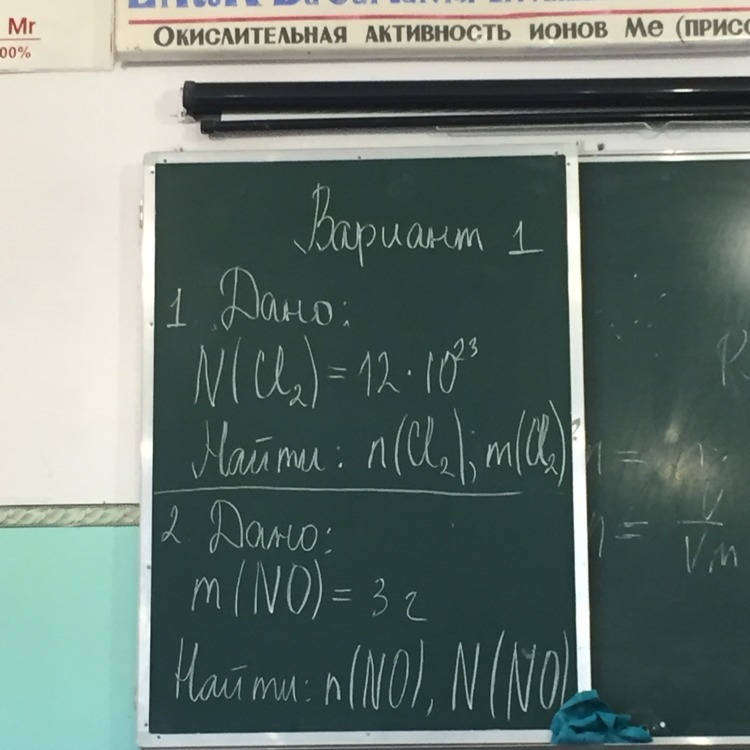 Mr
00%
Окислительная активность ионов Me (присо
Вариант 1
1 Дано:
N(Cl₂) = 12 · 10²³
Найти: n(Cl₂); m(Cl₂)
2 Дано:
m(NO) = 3 г
Найти: n(NO), N(NO)
n =
n = V/Vm